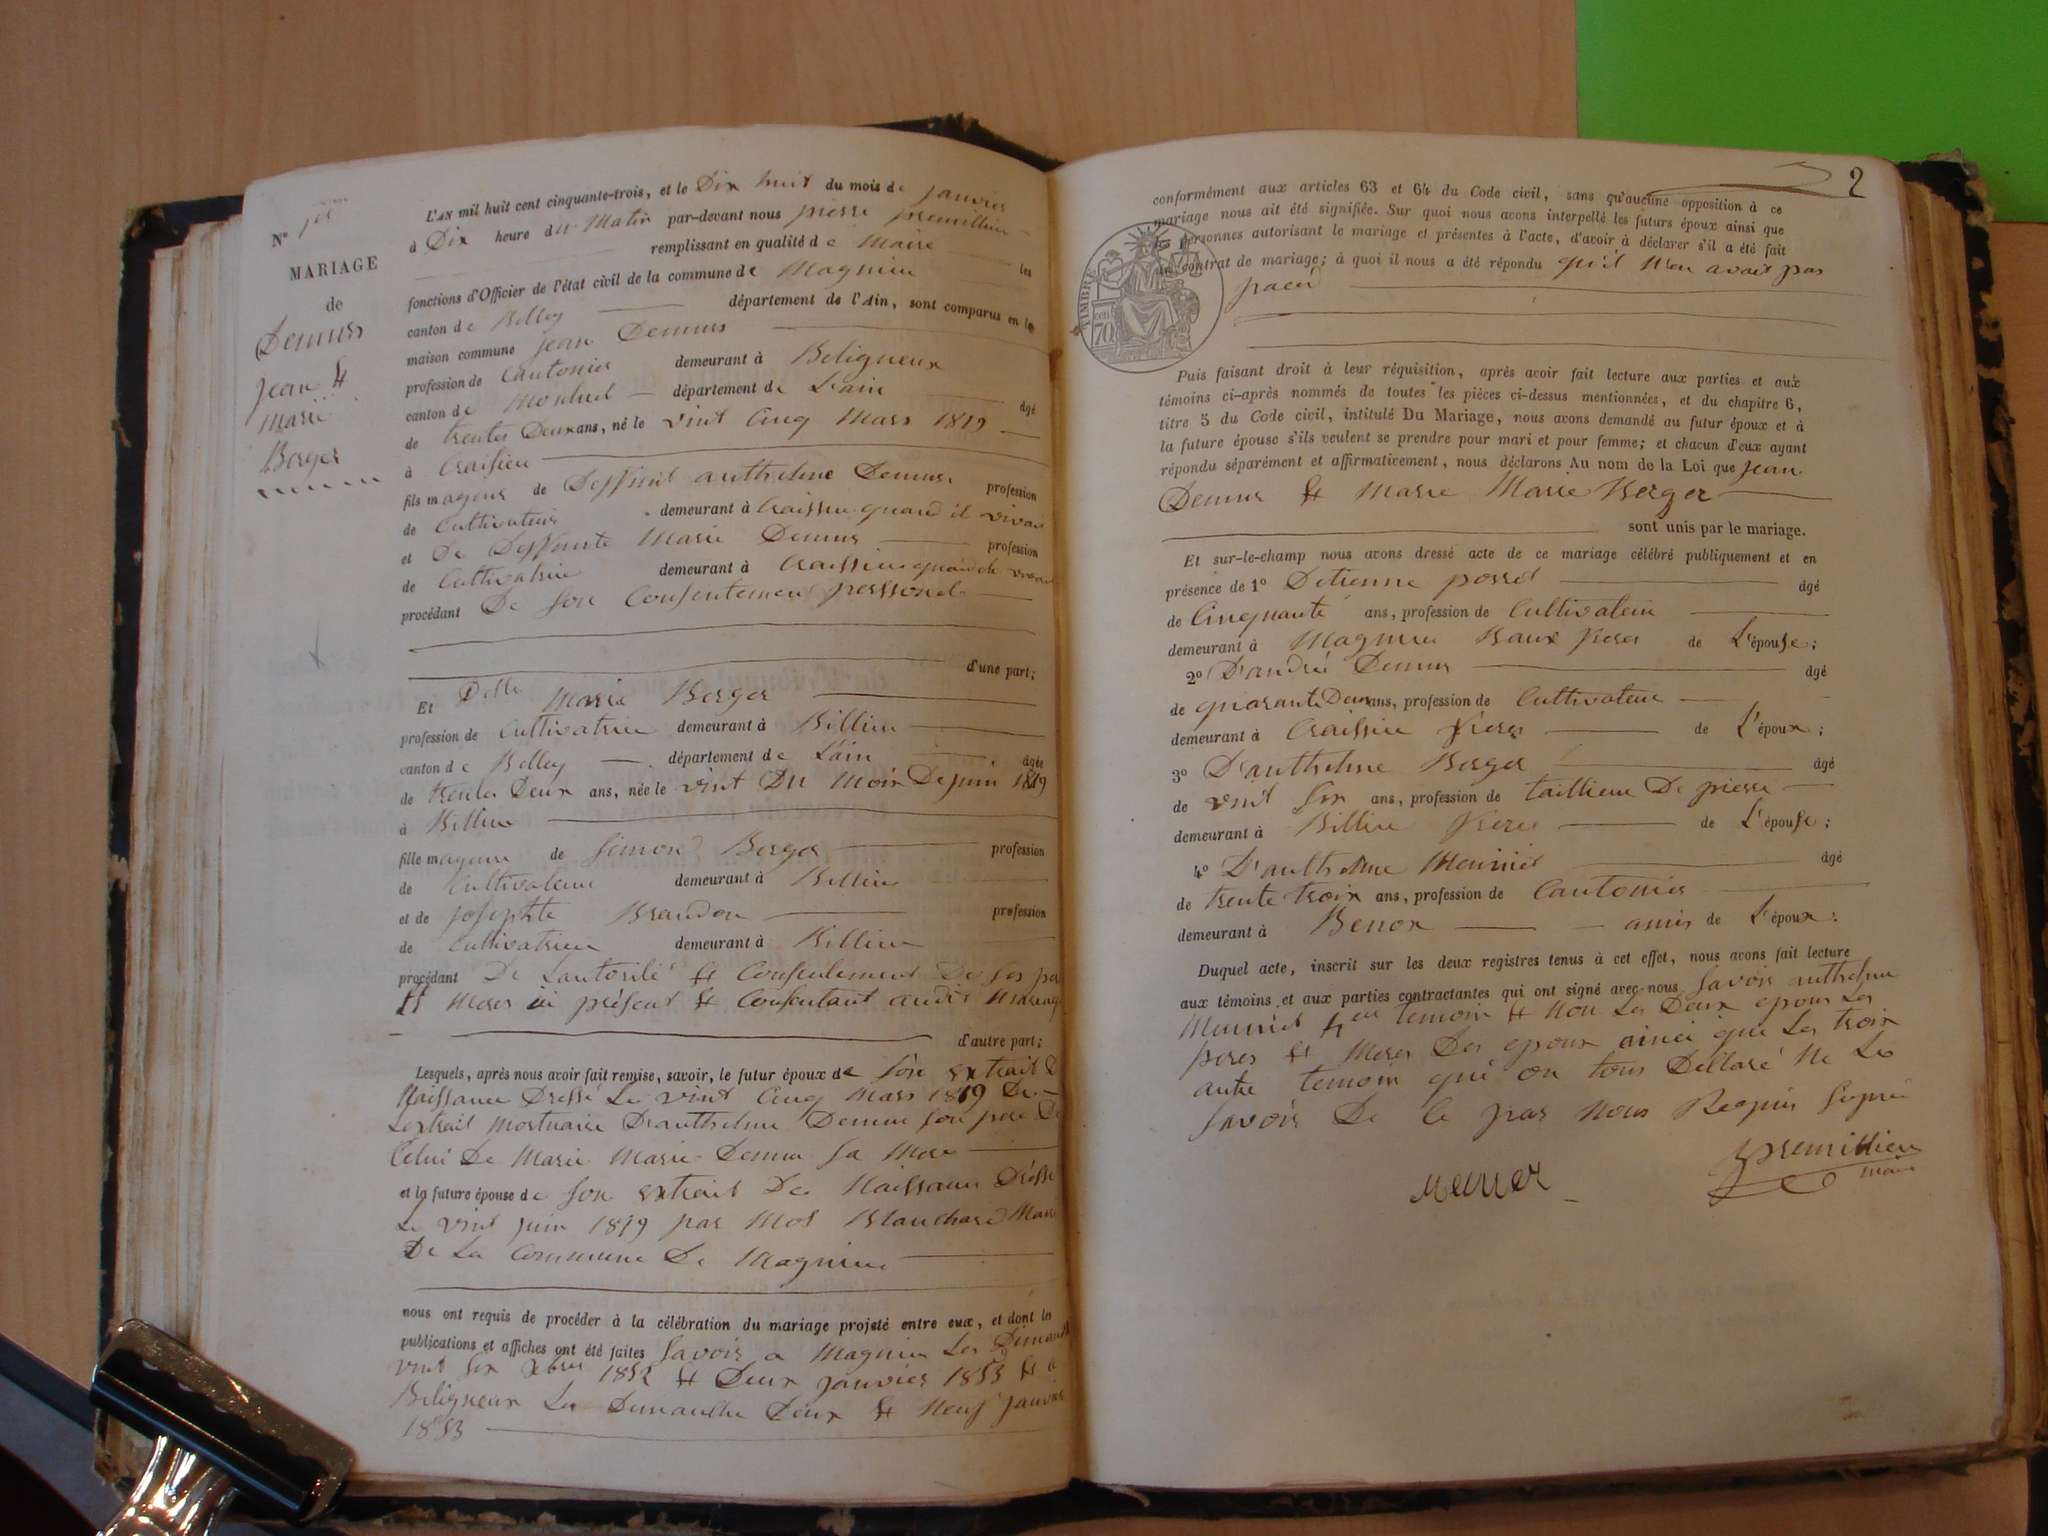 N° 1er
MARIAGE
de
Demurs
Jean &
Marie
Berger
L'AN mil huit cent cinquante-trois, et le Dix huit du mois de janvier
à Dix heure du Matin par-devant nous pierre premillieu
remplissant en qualité de Maire les
fonctions d'Officier de l'état civil de la commune de Magnieu
canton de Belley département de l'Ain, sont comparus en la
maison commune jean Demurs
profession de Cantonier demeurant à Beligneux
canton de Montluel département de L'ain âgé
de trentes Deux ans, né le vint Cinq Mars 1819
à Craisieu
fils mageur de Deffunt anthelme Demurs profession
de Cultivateur demeurant à Craissieu quand il vivait
et de Deffunte Marie Demurs profession
de Cultivatrice demeurant à Craissieu quand elle vivait
procédant De Son Consentement perssonel
d'une part;
Et Delle Marie Berger
profession de Cultivatrice demeurant à Billieu
canton de Belley département de L'ain âgée
de trentes Deux ans, née le vint Du Mois De juin 1819
à Billieu
fille mageure de Simond Berger profession
de Cultivateur demeurant à Billieu
et de josephte Brandon profession
de Cultivatrice demeurant à Billieu
procédant De Lautorité & Consentement De Ses pere
& Meres ici présent & Consentant audit Mariage
d'autre part;
Lesquels, après nous avoir fait remise, savoir, le futur époux de Son extrait De
Naissance Dressé Le vint Cinq Mars 1819 De
Lextrait Mortuaire D'anthelme Demurs Son père De
Celui De Marie Marie Demurs Sa Mere
et la future épouse de Son extrait De Naissance Dressé
Le vint juin 1819 par Mot Blanchard Maire
De La Commune De Magnieu
nous ont requis de procéder à la célébration du mariage projeté entre eux, et dont les
publications et affiches ont été faites Savoir a Magnieu Les Dimanche
vint Six Xbres 1852 & Deux janvier 1853 & a
Beligneux Les Dimanche Deux & Neuf janvier
1853
2
conformément aux articles 63 et 64 du Code civil, sans qu'aucune opposition à ce
mariage nous ait été signifiée. Sur quoi nous avons interpellé les futurs époux ainsi que
les personnes autorisant le mariage et présentes à l'acte, d'avoir à déclarer s'il a été fait
un contrat de mariage; à quoi il nous a été répondu qu'il N'en avait pas
pacé
TIMBRE
cen
70
Puis faisant droit à leur réquisition, après avoir fait lecture aux parties et aux
témoins ci-après nommés de toutes les pièces ci-dessus mentionnées, et du chapitre 6,
titre 5 du Code civil, intitulé Du Mariage, nous avons demandé au futur époux et à
la future épouse s'ils veulent se prendre pour mari et pour femme; et chacun d'eux ayant
répondu séparément et affirmativement, nous déclarons Au nom de la Loi que Jean
Demurs & Marie Marie Berger
sont unis par le mariage.
Et sur-le-champ nous avons dressé acte de ce mariage célébré publiquement et en
présence de 1° Detienne âgé
de Cinquante ans, profession de Cultivateur
demeurant à Magnieu Baux frere de L'épouse;
2° D'andré Demurs âgé
de quarante Deux ans, profession de Cultivateur
demeurant à Craissieu freres de L'époux;
3° D'anthelme Berger âgé
de vint Six ans, profession de taillieur De pierre
demeurant à Billieu freres de L'épouse;
4° D'anthelme Meuniet âgé
de trente trois ans, profession de Cantonier
demeurant à amis de L'époux:
Duquel acte, inscrit sur les deux registres tenus à cet effet, nous avons fait lecture
aux témoins et aux parties contractantes qui ont signé avec nous Savoir anthelme
Meuniet 4eme temoin & Non Les Deux epoux Les
peres & Meres Des epoux ainci que Les trois
autre temoin qui on tous Déclaré Ne Le
Savoir De Ce par Nous Requis
premillieu
maire